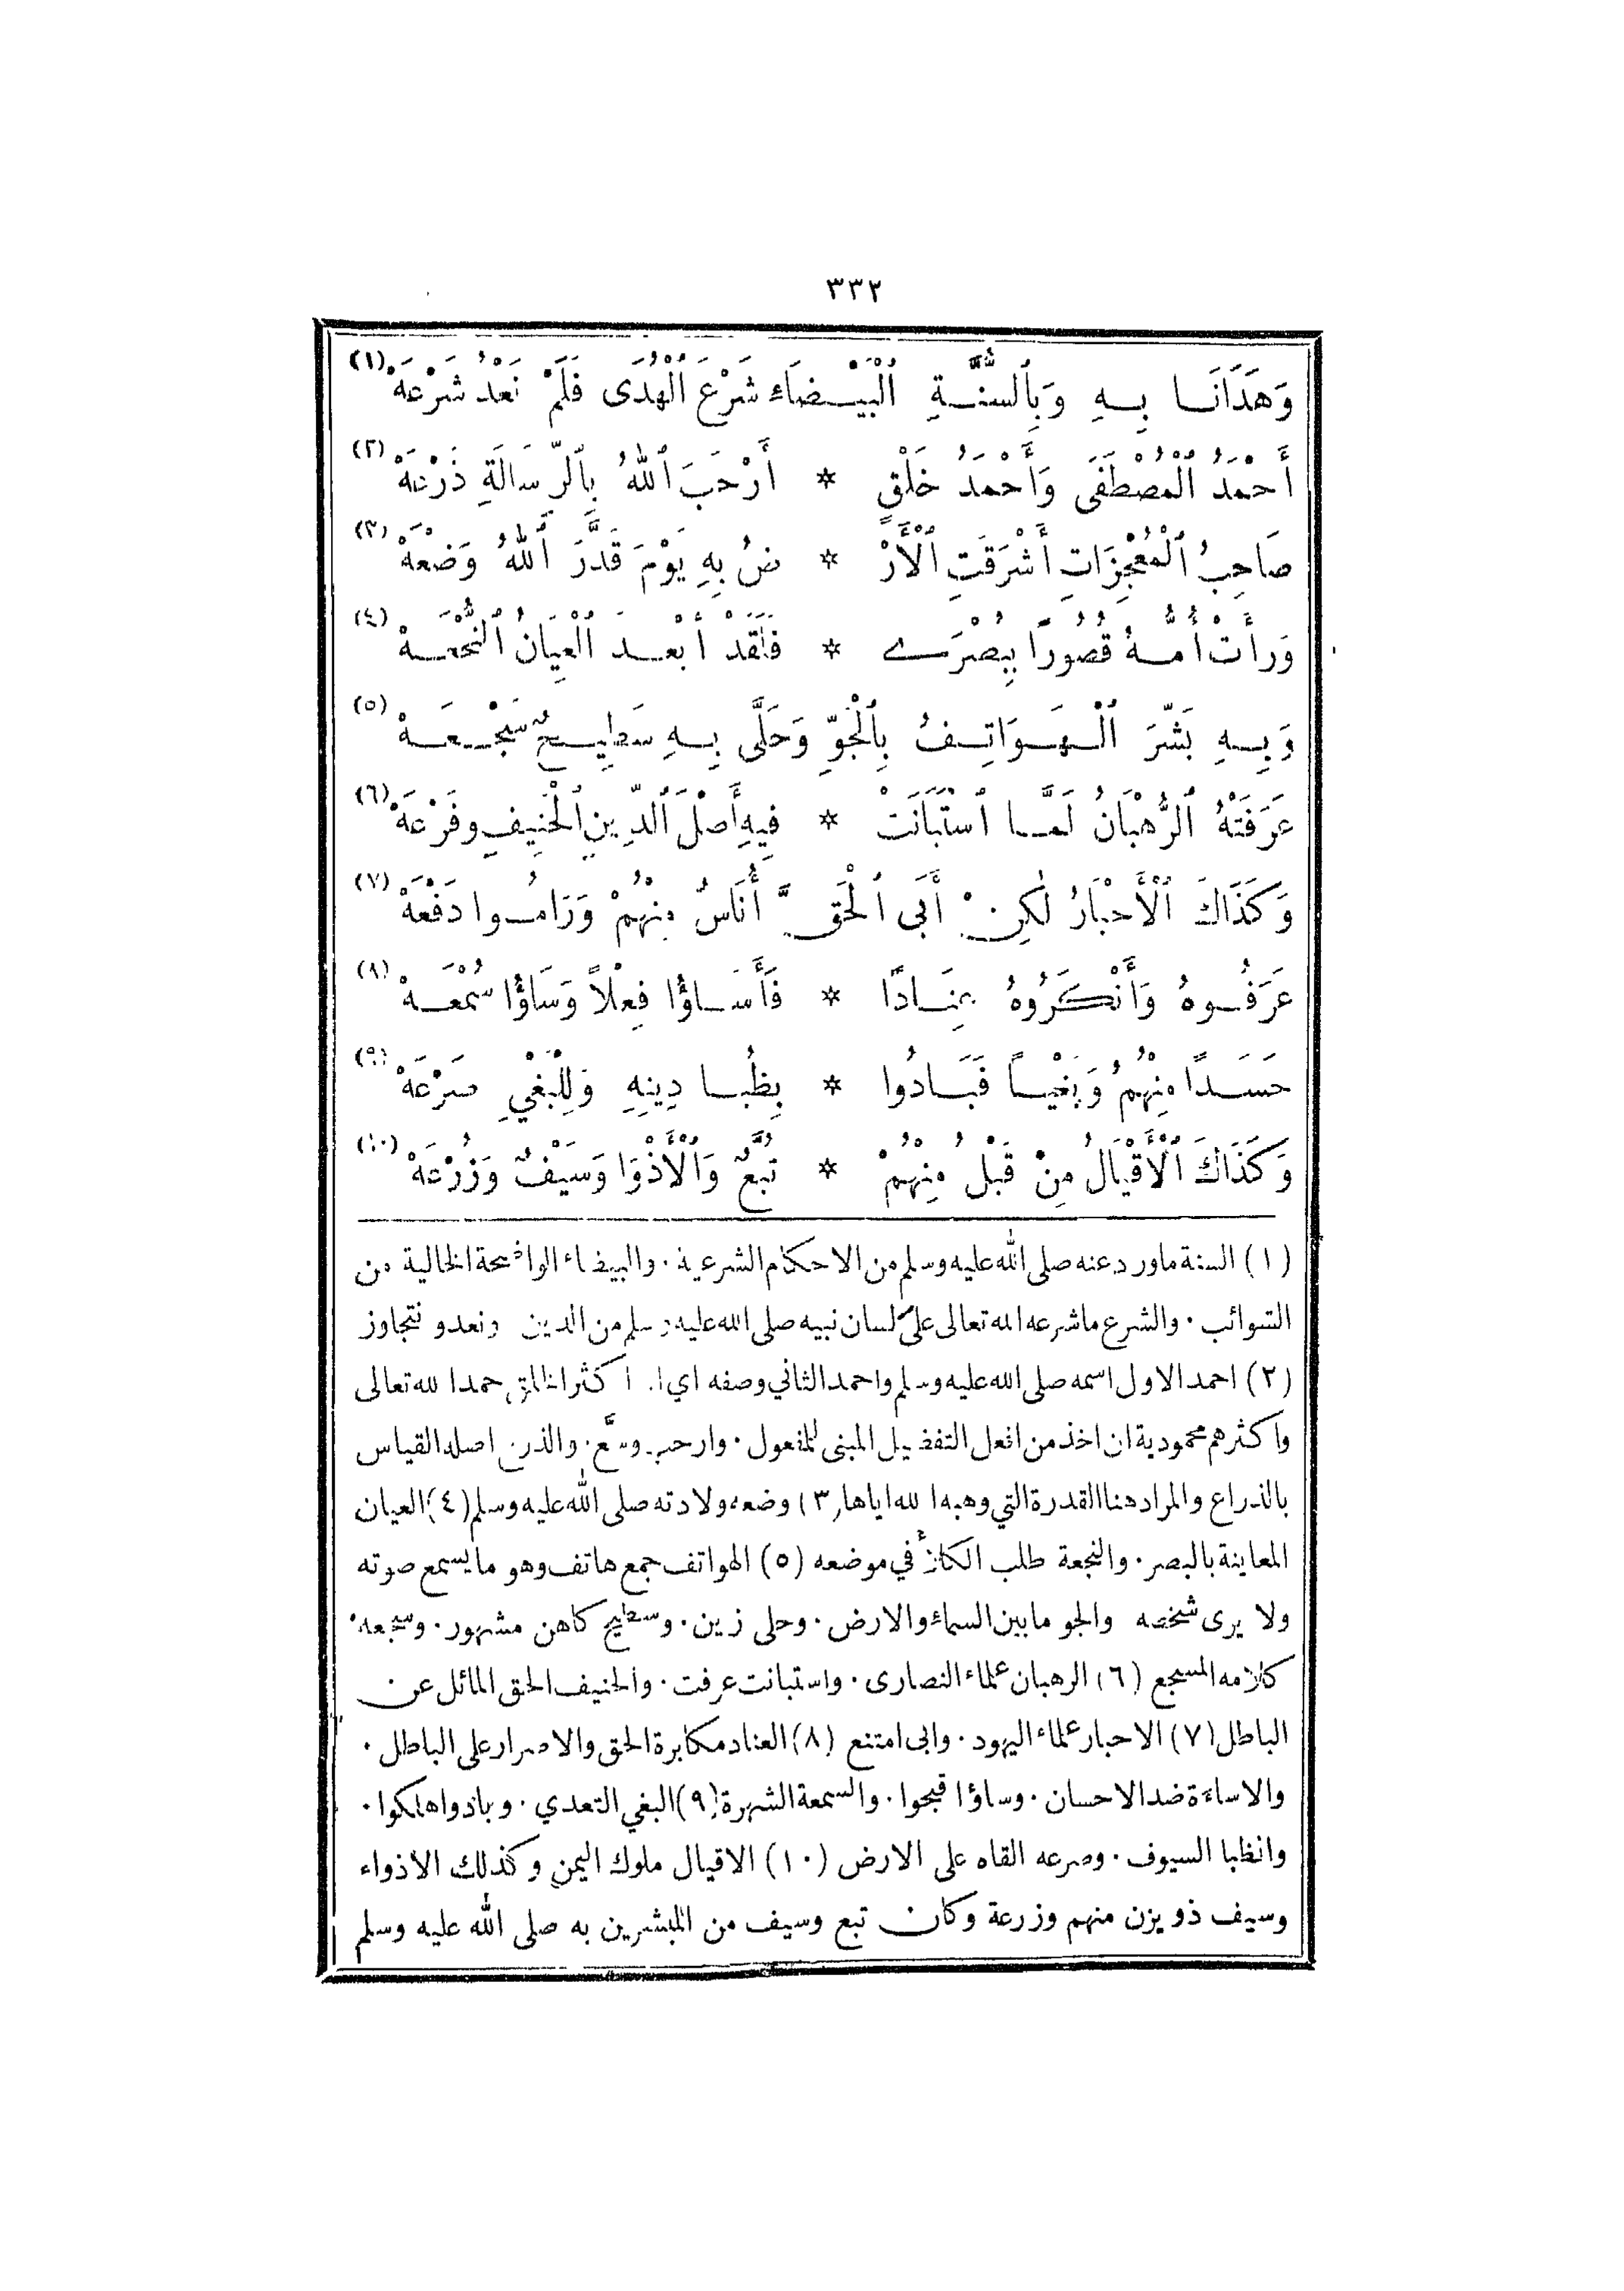 ٣٣٢
وَهَدَانَا بِهِ وَبِٱلسُّنَّةِ ٱلْبَيْضَاءِ شَرْعَ ٱلْهُدَى فَلَمْ نَعْدُ شَرْعَهْ (١)
أَحْمَدُ ٱلْمُصْطَفَى وَأَحْمَدُ خَلْقٍ * أَرْحَبَ ٱللهُ بِٱلرِّسَالَةِ ذَرْعَهْ (٢)
صَاحِبُ ٱلْمُعْجِزَاتِ أَشْرَقَتِ ٱلْأَرْ * ضُ بِهِ يَوْمَ قَدَّرَ ٱللهُ وَضْعَهْ (٣)
وَرَأَتْ أُمُّهُ قُصُورًا بِبُصْرَے * فَلَقَدْ أَبْعَدَ ٱلْعِيَانُ ٱلنُّجْعَهْ (٤)
وَبِهِ بَشَّرَ ٱلْهَوَاتِفُ بِٱلْجَوِّ وَحَلَّى بِهِ سَطِيحٌ سَجْعَهْ (٥)
عَرَفَتْهُ ٱلرُّهْبَانُ لَمَّا ٱسْتَبَانَتْ * فِيهِ أَصْلَ ٱلدِّينِ ٱلْحَنِيفِ وَفَرْعَهْ (٦)
وَكَذَاكَ ٱلْأَحْبَارُ لٰكِنْ أَبَى ٱلْحَقَّ أُنَاسٌ مِنْهُمْ وَرَامُوا دَفْعَهْ (٧)
عَرَفُوهُ وَأَنْكَرُوهُ عِنَادًا * فَأَسَاؤُا فِعْلاً وَسَاؤُا سُمْعَهْ (٨)
حَسَدًا مِنْهُمُ وَبَغْيًا فَبَادُوا * بِظُبا دِينِهِ وَلِلْبَغْيِ صَرْعَهْ (٩)
وَكَذَاكَ ٱلْأَقْيَالُ مِنْ قَبْلُ مِنْهُمْ * تُبَّعٌ وَٱلْأَذْوَا وَسَيْفٌ وَزُرْعَهْ (١٠)
(١) السنة ماورد عنه صلى الله عليه وسلم من الاحكام الشرعية. والبيضاء الواضحة الخالية من
الشوائب. والشرع ماشرعه الله تعالى على لسان نبيه صلى الله عليه وسلم من الدين ونعدو نتجاوز
(٢) احمد الاول اسمه صلى الله عليه وسلم واحمد الثاني وصفه اي اكثر الخلق حمدا لله تعالى
واكثرهم محمودية ان اخذ من افعل التفضيل المبنى للمفعول. وارحب وسَّع. والذرع اصله القياس
بالذراع والمراد هنا القدرة التي وهبه الله اياها (٣) وضعه ولادته صلى الله عليه وسلم (٤) العيان
المعاينة بالبصر. والنجعة طلب الكلأ في موضعه (٥) الهواتف جمع هاتف وهو مايسمع صوته
ولا يرى شخصه والجو مابين السماء والارض. وحلى زين. وسطيح كاهن مشهور. وسجعه
كلامه المسجع (٦) الرهبان علماء النصارى. واستبانت عرفت. والحنيف الحق المائل عن
الباطل (٧) الاحبار علماء اليهود. وابى امتنع (٨) العناد مكابرة الحق والاصرار على الباطل.
والاساءة ضد الاحسان. وساؤا قبحوا. والسمعة الشهرة (٩) البغي التعدي. وبادوا هلكوا.
والظبا السيوف. وصرعه القاه على الارض (١٠) الاقيال ملوك اليمن وكذلك الاذواء
وسيف ذو يزن منهم وزرعة وكان تبع وسيف من المبشرين به صلى الله عليه وسلم